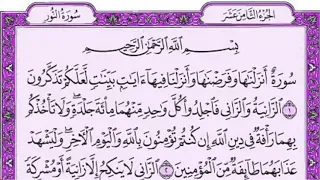 الجزء الثامن عشر
سورة النور
بِسْمِ اللَّهِ الرَّحْمَٰنِ الرَّحِيمِ
سُورَةٌ أَنزَلْنَٰهَا وَفَرَضْنَٰهَا وَأَنزَلْنَا فِيهَآ ءَايَٰتٍۭ بَيِّنَٰتٍ لَّعَلَّكُمْ تَذَكَّرُونَ
١ ٱلزَّانِيَةُ وَٱلزَّانِى فَٱجْلِدُوا۟ كُلَّ وَٰحِدٍ مِّنْهُمَا مِا۟ئَةَ جَلْدَةٍ ۖ وَلَا تَأْخُذْكُم
بِهِمَا رَأْفَةٌ فِى دِينِ ٱللَّهِ إِن كُنتُمْ تُؤْمِنُونَ بِٱللَّهِ وَٱلْيَوْمِ ٱلْءَاخِرِ ۖ وَلْيَشْهَدْ
عَذَابَهُمَا طَآئِفَةٌ مِّنَ ٱلْمُؤْمِنِينَ ٢ ٱلزَّانِى لَا يَنكِحُ إِلَّا زَانِيَةً أَوْ مُشْرِكَةً